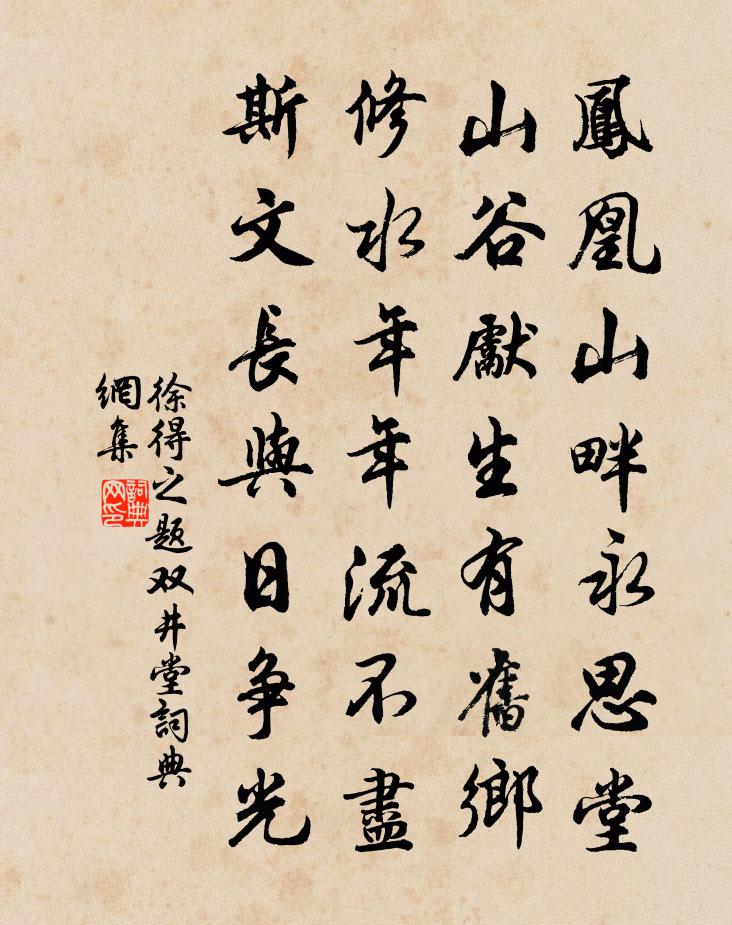 鳳凰山畔永思堂
山谷獻生有舊鄉
修水年年流不盡
斯文長與日争光
徐得之题双井堂詞典
網集
詞典網印